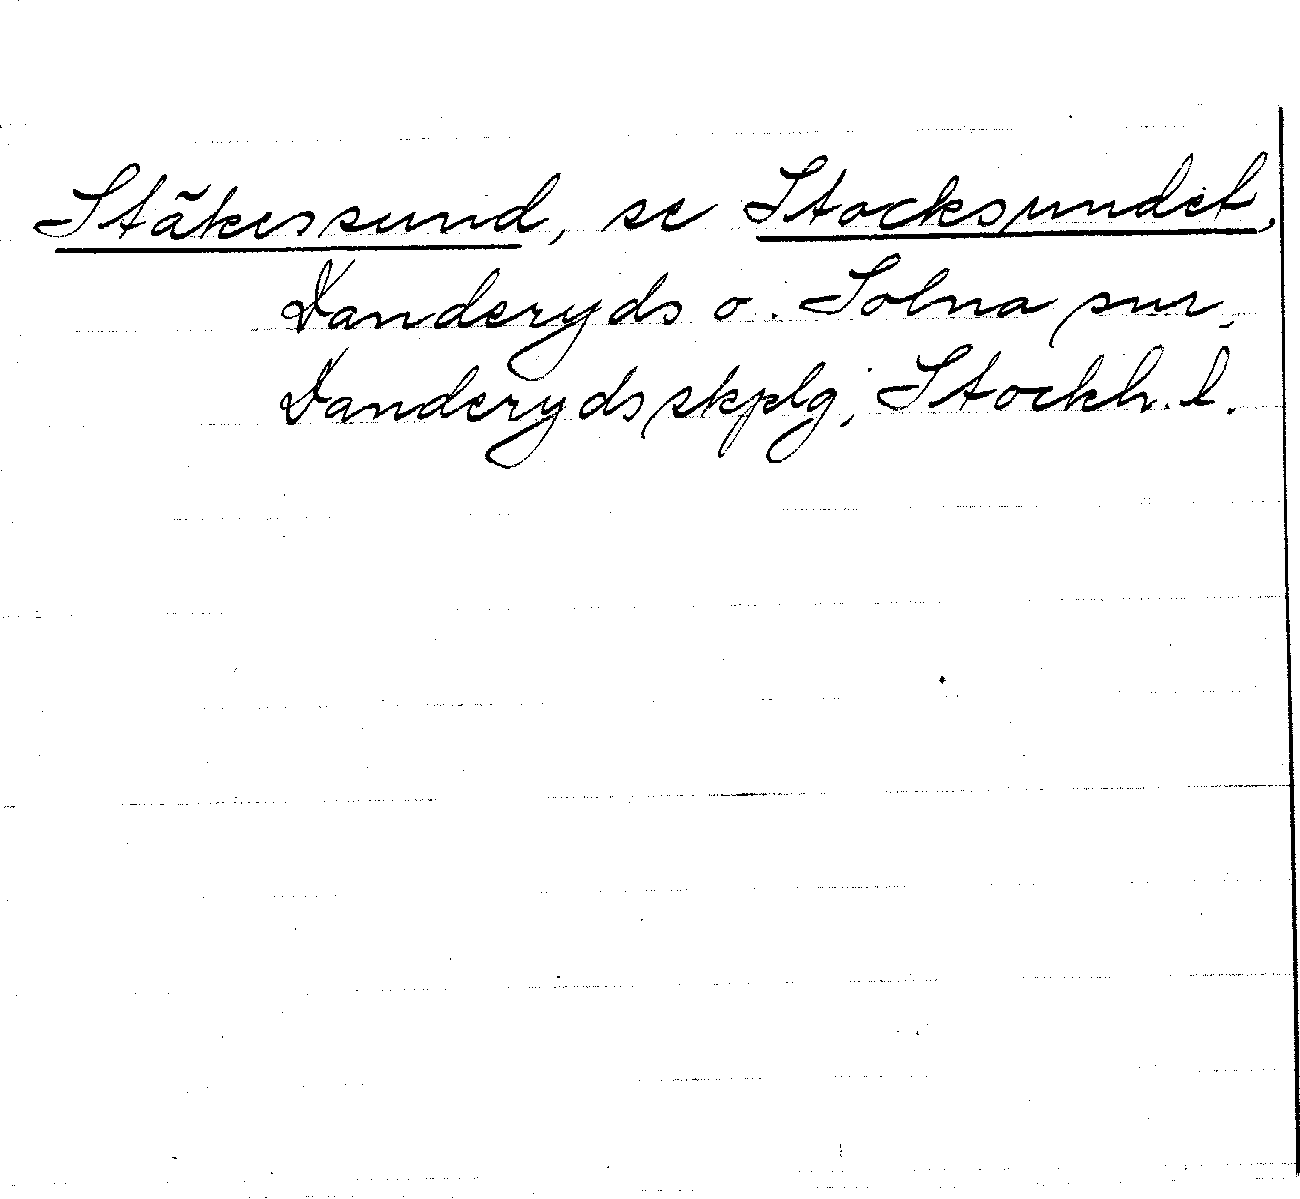 Stäkessund, se Stocksundet,
Danderyds o. Solna snr,
Danderyds skplg, Stockh. l.